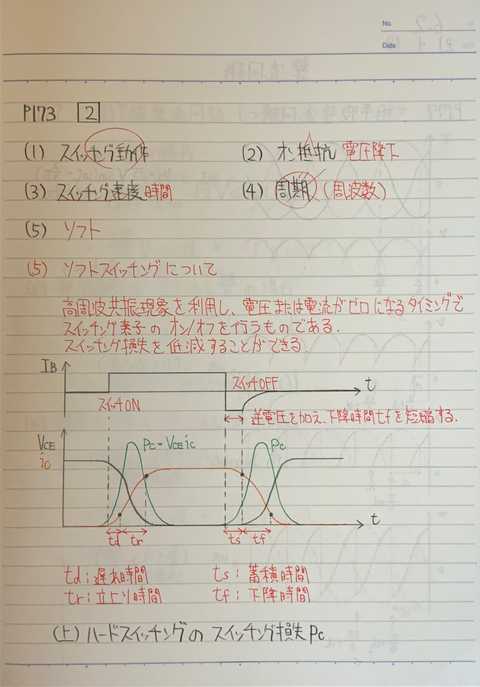 No.
Date
P173 2
(1) スイッチング動作 (2) オン抵抗 電圧降下
(3) スイッチング 時間 (4) 周期 (周波数)
(5) ソフト
(5) ソフトスイッチングについて
高周波共振現象を利用し、電圧または電流がゼロになるタイミングで
スイッチング素子のオン/オフを行うものである.
スイッチング損失を低減することができる.
IB スイッチON スイッチOFF t
逆電圧を加え、下降時間tfを短縮する.
VCE
ic
Pc=VCE ic Pc
t
td tr ts tf
td:遅れ時間 ts:蓄積時間
tr:立上り時間 tf:下降時間
(上) ハードスイッチングの スイッチング損失 Pc